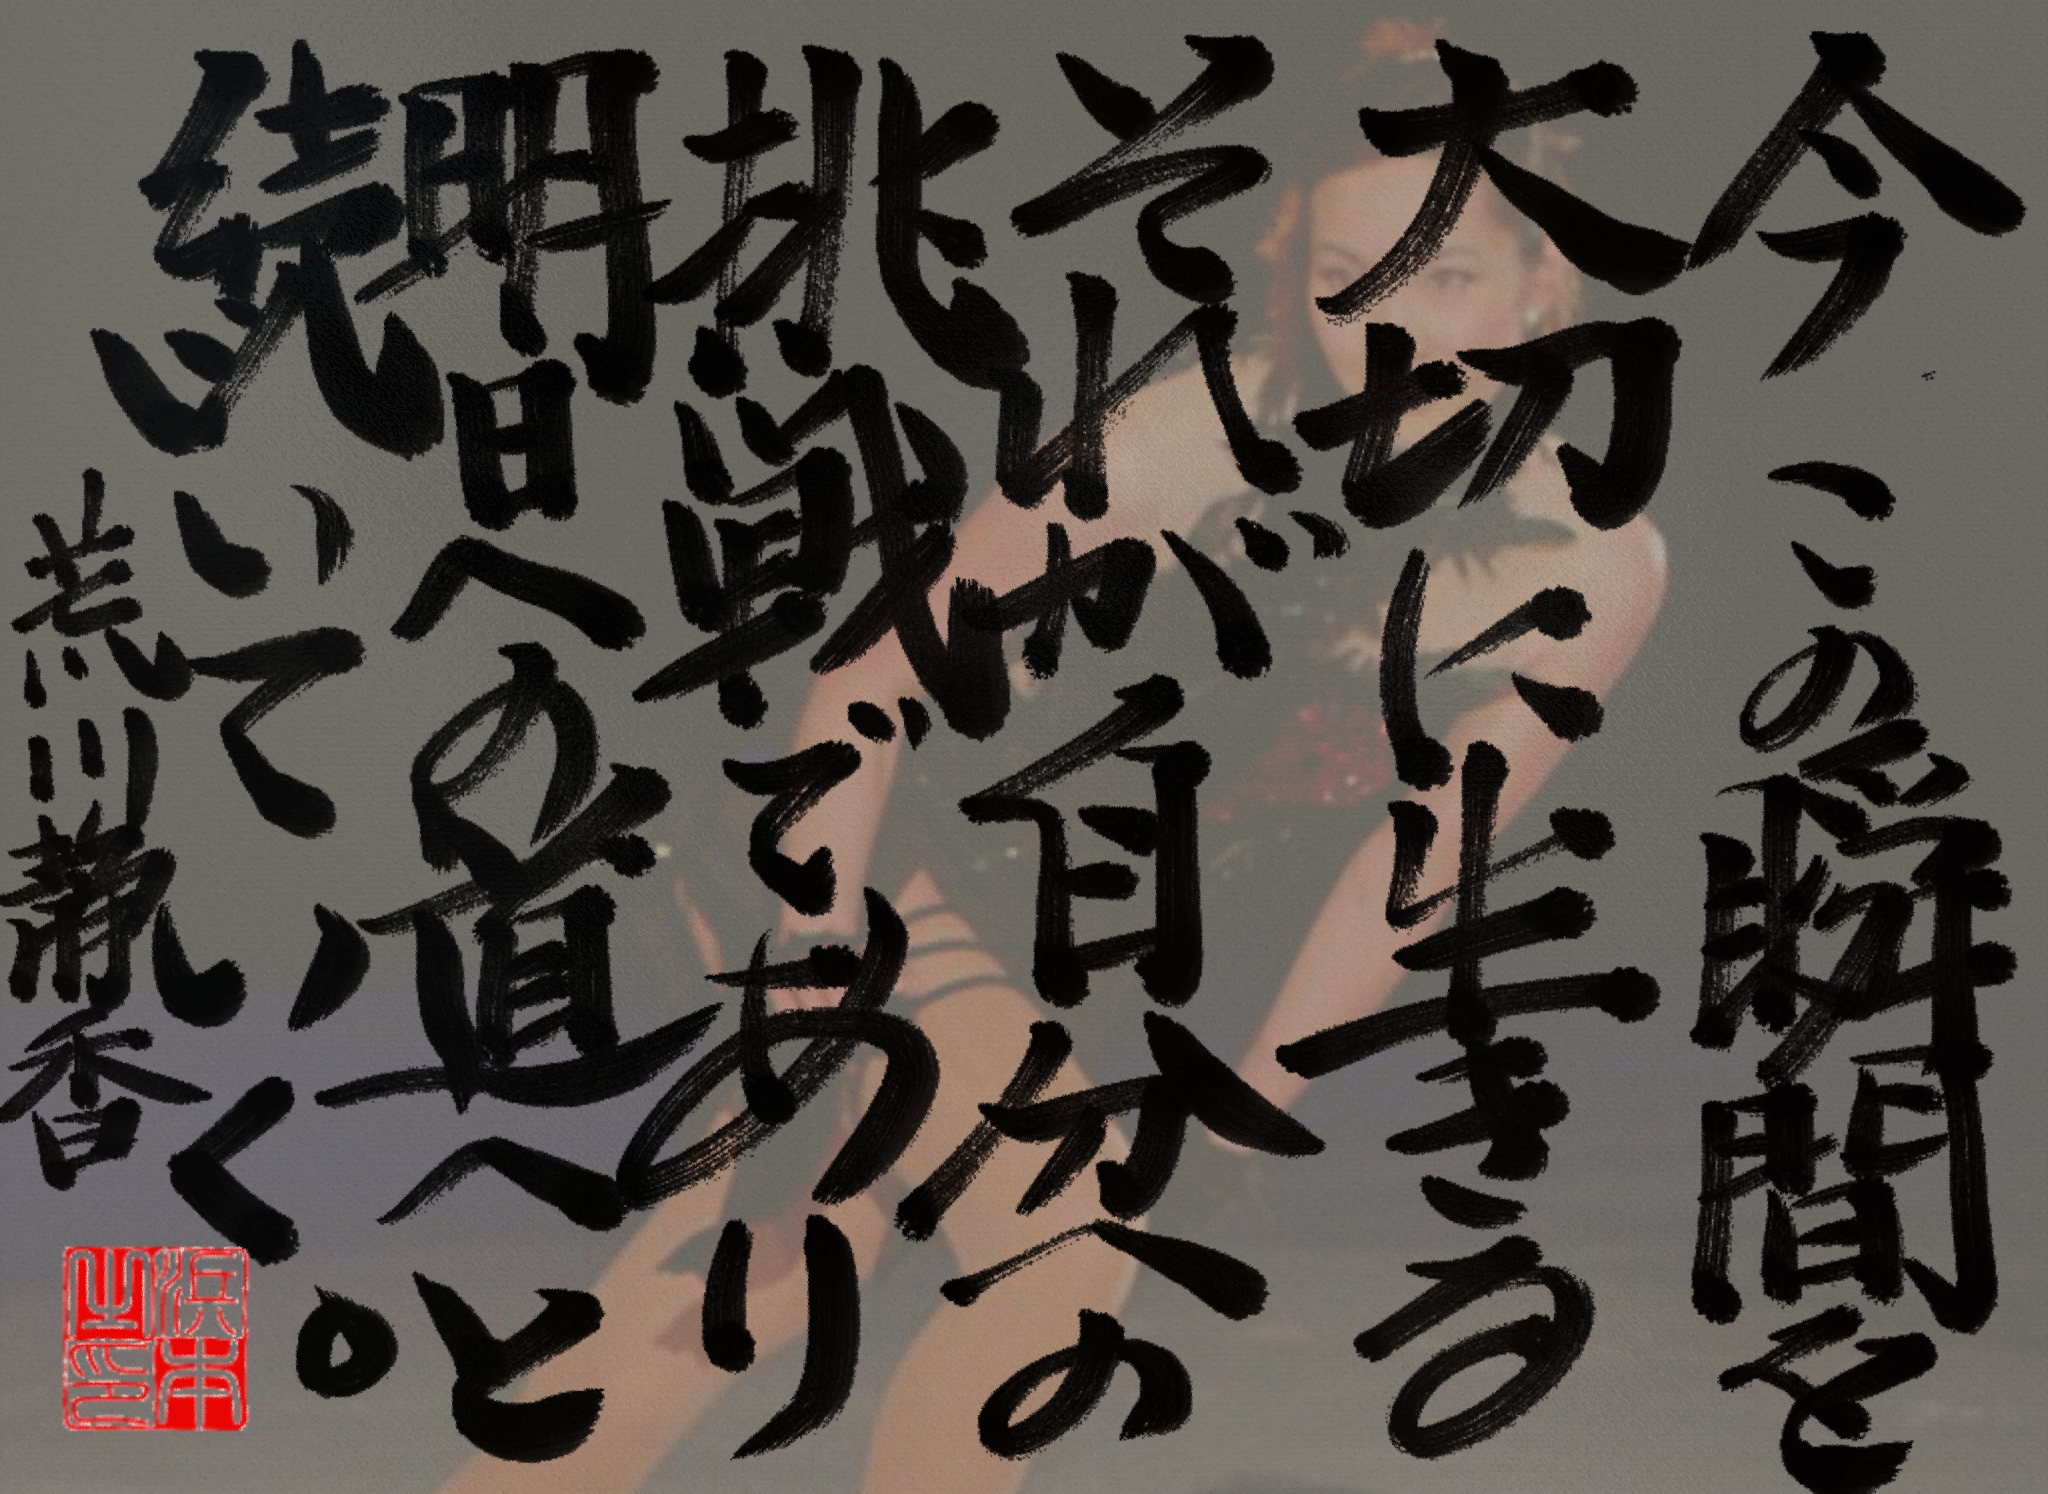 今この瞬間を
大切に生きる
それが自分への
挑戦であり
明日への道へと
続いていく。
荒川静香
浜本
之印